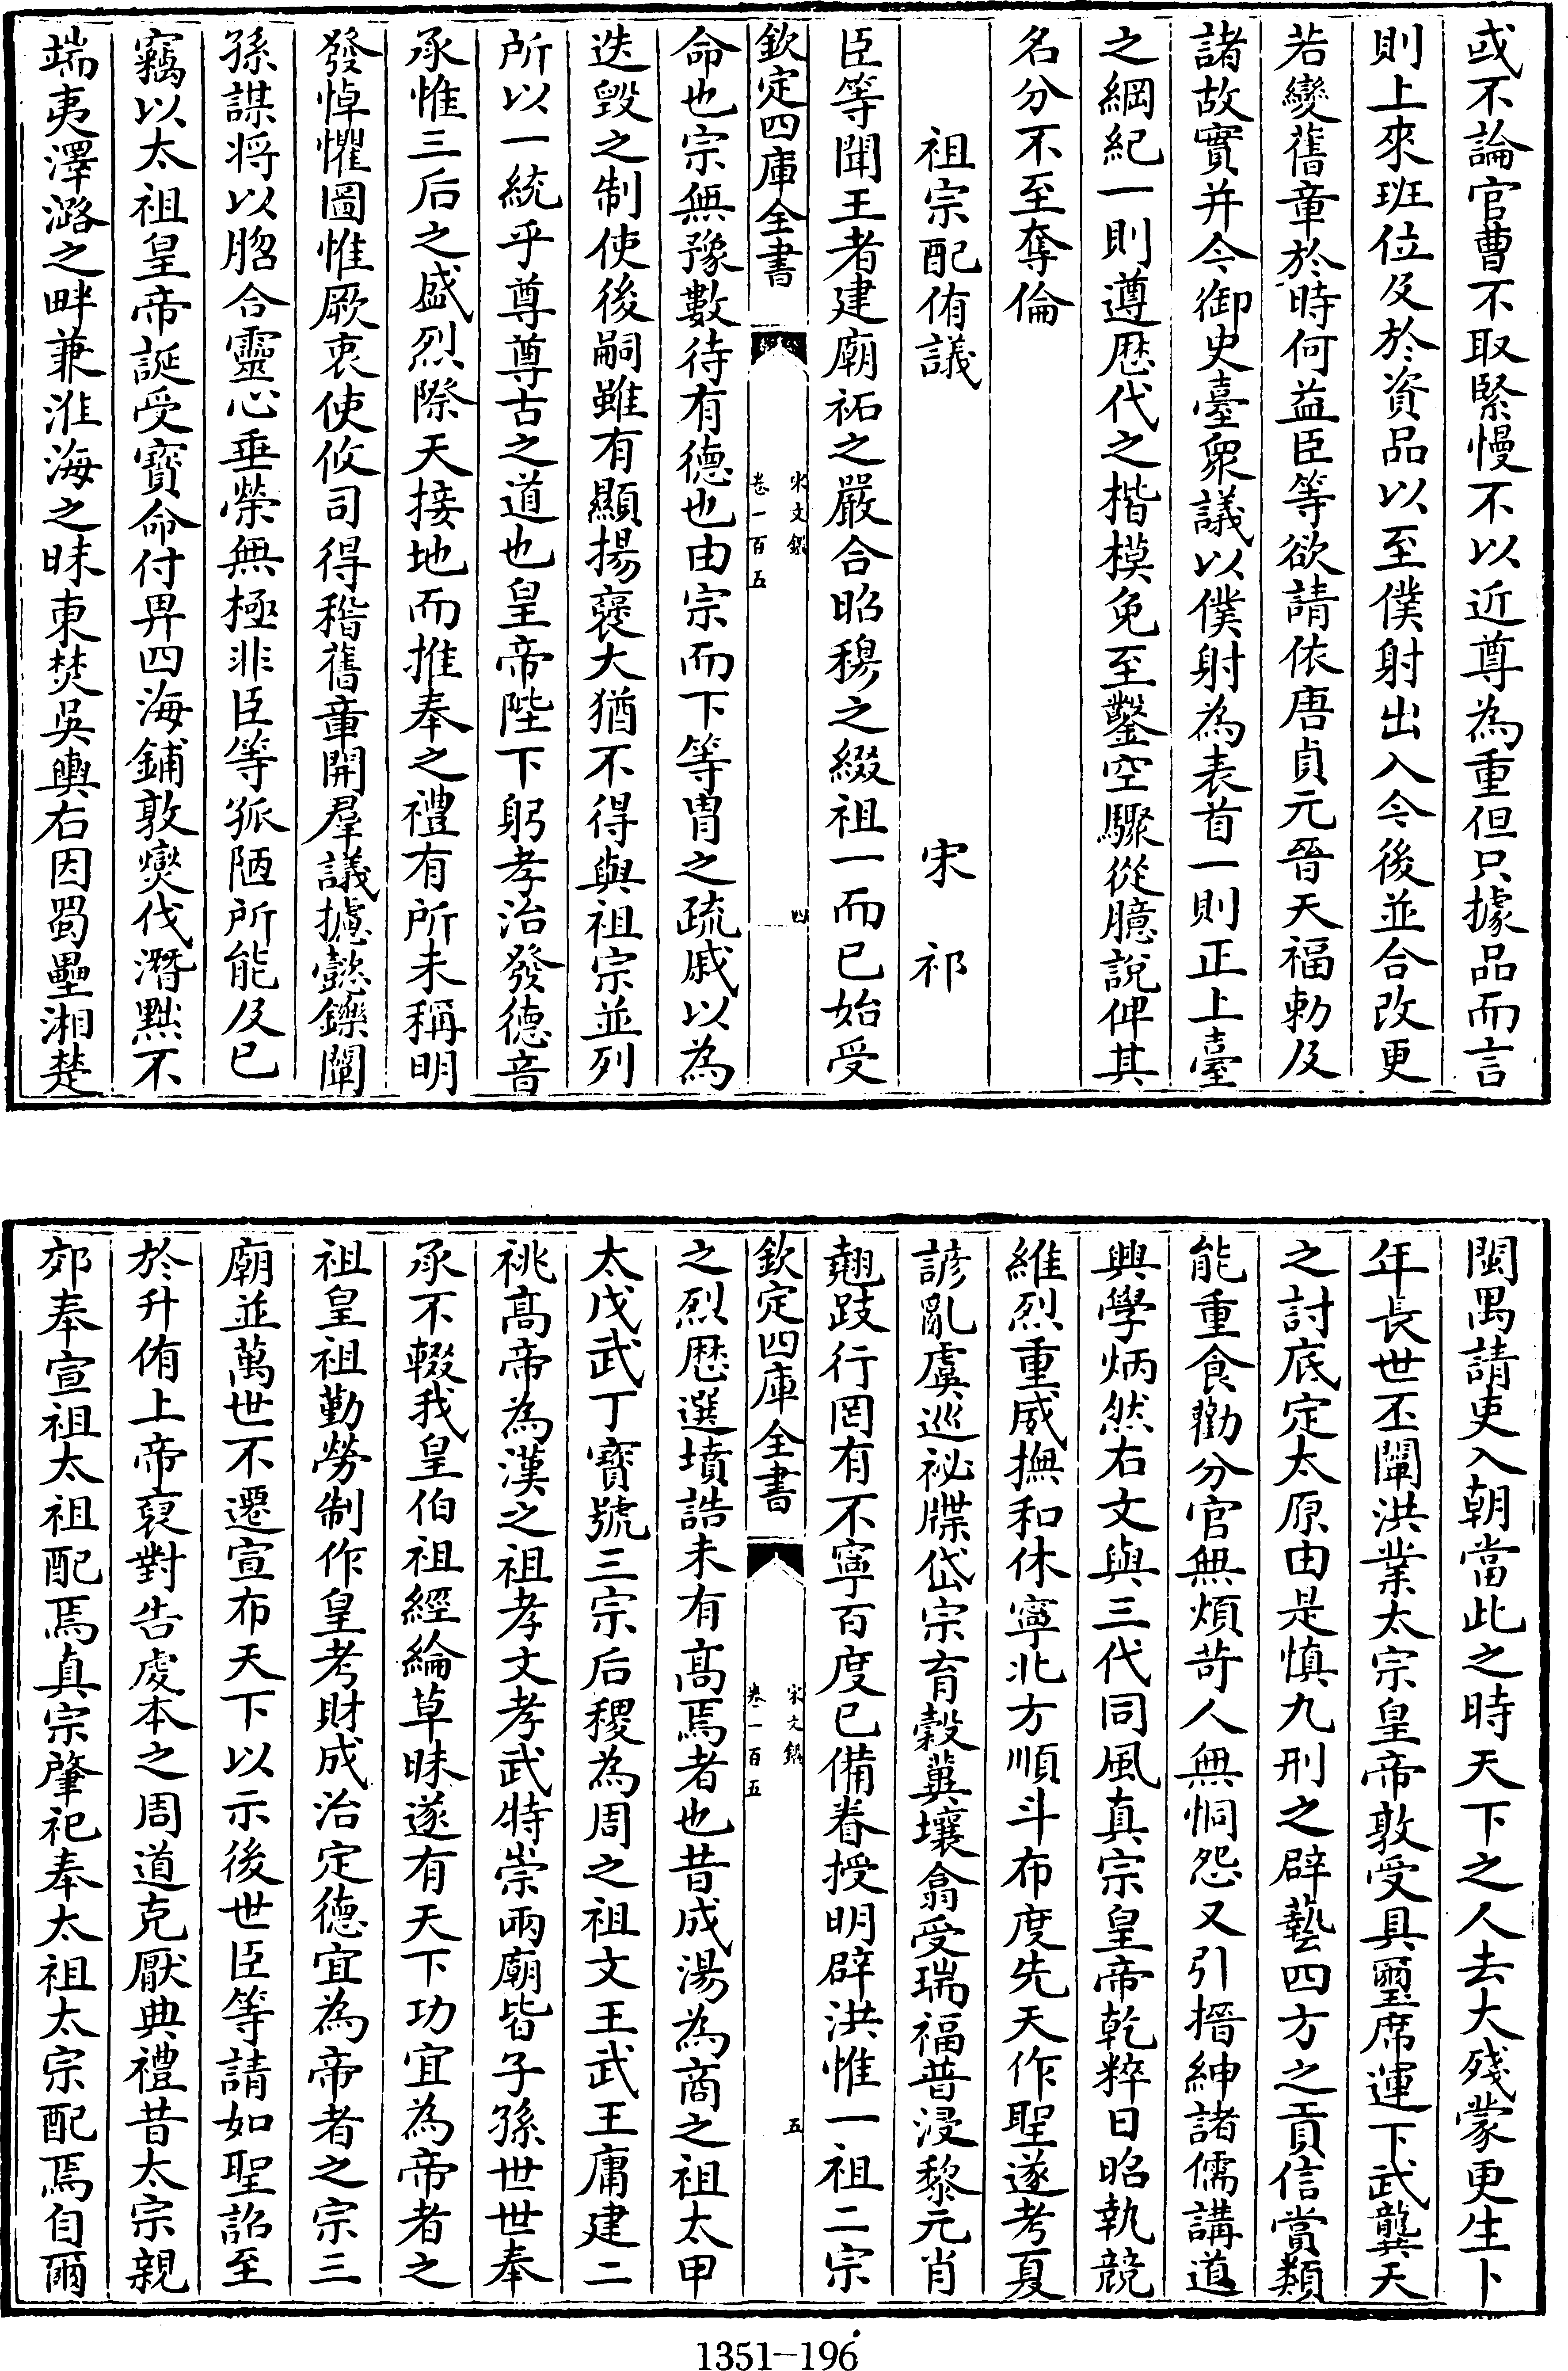 或不論官曹不取緊慢不以近尊為重但只據品而言
則上來班位及於資品以至僕射出入今後並合改更
若變舊章於時何益臣等欲請依唐貞元晉天福勅及
諸故實并今御史臺衆議以僕射為表首一則正上臺
之綱紀一則遵歴代之楷模免至鑿空驟從臆說俾其
名分不至奪倫
祖宗配侑議 宋祁
臣等聞王者建廟祏之嚴合昭穆之綴祖一而已始受
欽定四庫全書 宋文鑑 卷一百五 四
命也宗無豫數待有德也由宗而下等胄之疏戚以為
迭毀之制使後嗣雖有顯揚褒大猶不得與祖宗並列
所以一統乎尊尊古之道也皇帝陛下躬孝治發德音
承惟三后之盛烈際天接地而推奉之禮有所未稱明
發悼懼圖惟厥衷使攸司得稽舊章開羣議攄懿鑠闡
孫謀将以脗合靈心垂榮無極非臣等孤陋所能及已
竊以太祖皇帝誕受寳命付畀四海鋪敦爕伐潛黙不
端夷澤潞之畔兼淮海之昧東焚吳輿右因蜀壘湘楚
閩禺請吏入朝當此之時天下之人去大殘蒙更生卜
年長世丕闡洪業太宗皇帝敦受具璽席運下武龔天
之討底定太原由是慎九刑之辟藝四方之貢信賞類
能重食勸分官無煩苛人無恫怨又引搢紳諸儒講道
興學炳然右文與三代同風真宗皇帝乾粹日昭執競
維烈重威撫和休寧北方順斗布度先天作聖遂考夏
諺亂虞巡祕牒岱宗育穀冀壤翕受瑞福普浸黎元肖
翹跂行罔有不寧百度已備眷授明辟洪惟一祖二宗
欽定四庫全書 宋文鑑 卷一百五 五
之烈歴選墳誥未有髙焉者也昔成湯為商之祖太甲
太戊武丁寳號三宗后稷為周之祖文王武王庸建二
祧髙帝為漢之祖孝文孝武特崇兩廟皆子孫世世奉
承不輟我皇伯祖經綸草昧遂有天下功宜為帝者之
祖皇祖勤勞制作皇考財成治定德宜為帝者之宗三
廟並萬世不遷宣布天下以示後世臣等請如聖詔至
於升侑上帝裒對告處本之周道克厭典禮昔太宗親
郊奉宣祖太祖配焉真宗肇祀奉太祖太宗配焉自爾
1351-196